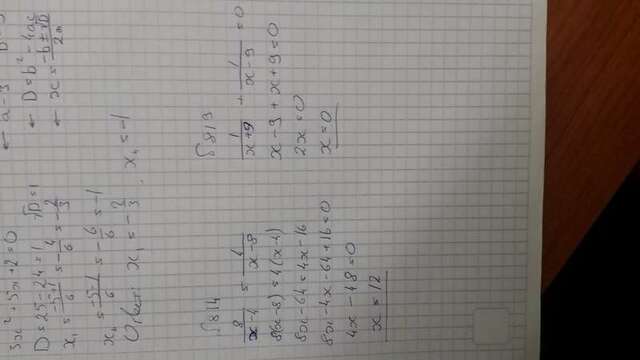 3x² + 5x + 2 = 0
D = 25 - 24 = 1 √D = 1
← D = b² - 4ac
x₁ = \frac{-5+1}{6} = -\frac{4}{6} = -\frac{2}{3}
← x = \frac{-b ± √D}{2a}
x₂ = \frac{-5-1}{6} = -\frac{6}{6} = -1
Ответ: x₁ = -\frac{2}{3} x₂ = -1
814
\frac{8}{x-4} = \frac{4}{x-8}
8(x-8) = 4(x-4)
8x - 64 = 4x - 16
8x - 4x - 64 + 16 = 0
4x - 48 = 0
x = 12
819
\frac{1}{x+9} + \frac{1}{x-9} = 0
x - 9 + x + 9 = 0
2x = 0
x = 0